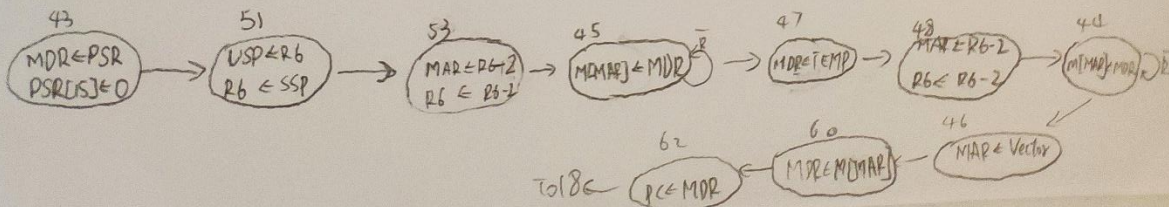 43
MDR←PSR
PSR[15]←0
51
USP←R6
R6←SSP
53
MAR←R6-2
R6←R6-2
45
M[MAR]←MDR
R̅
47
MDR←TEMP
48
MAR←R6-2
R6←R6-2
44
M[MAR]←MDR
46
MAR←Vector
60
MDR←M[MAR]
62
PC←MDR
To18←